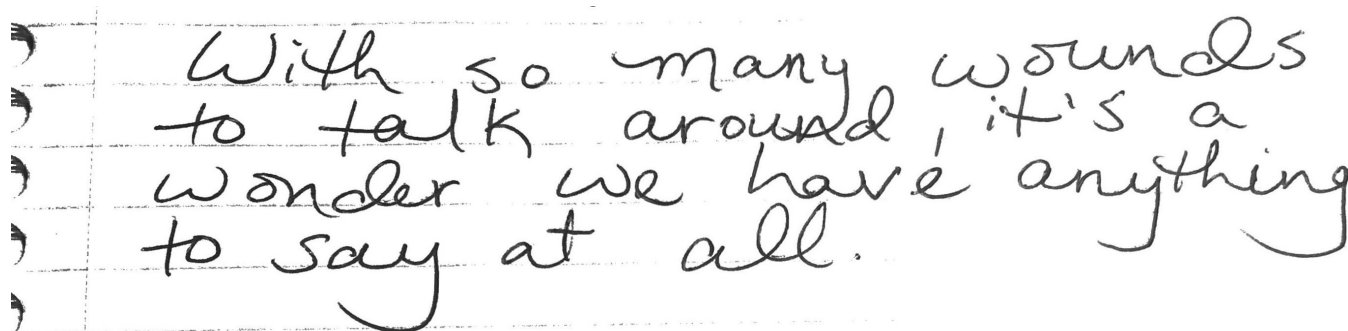 With so many wounds
to talk around, it's a
wonder we have anything
to say at all.